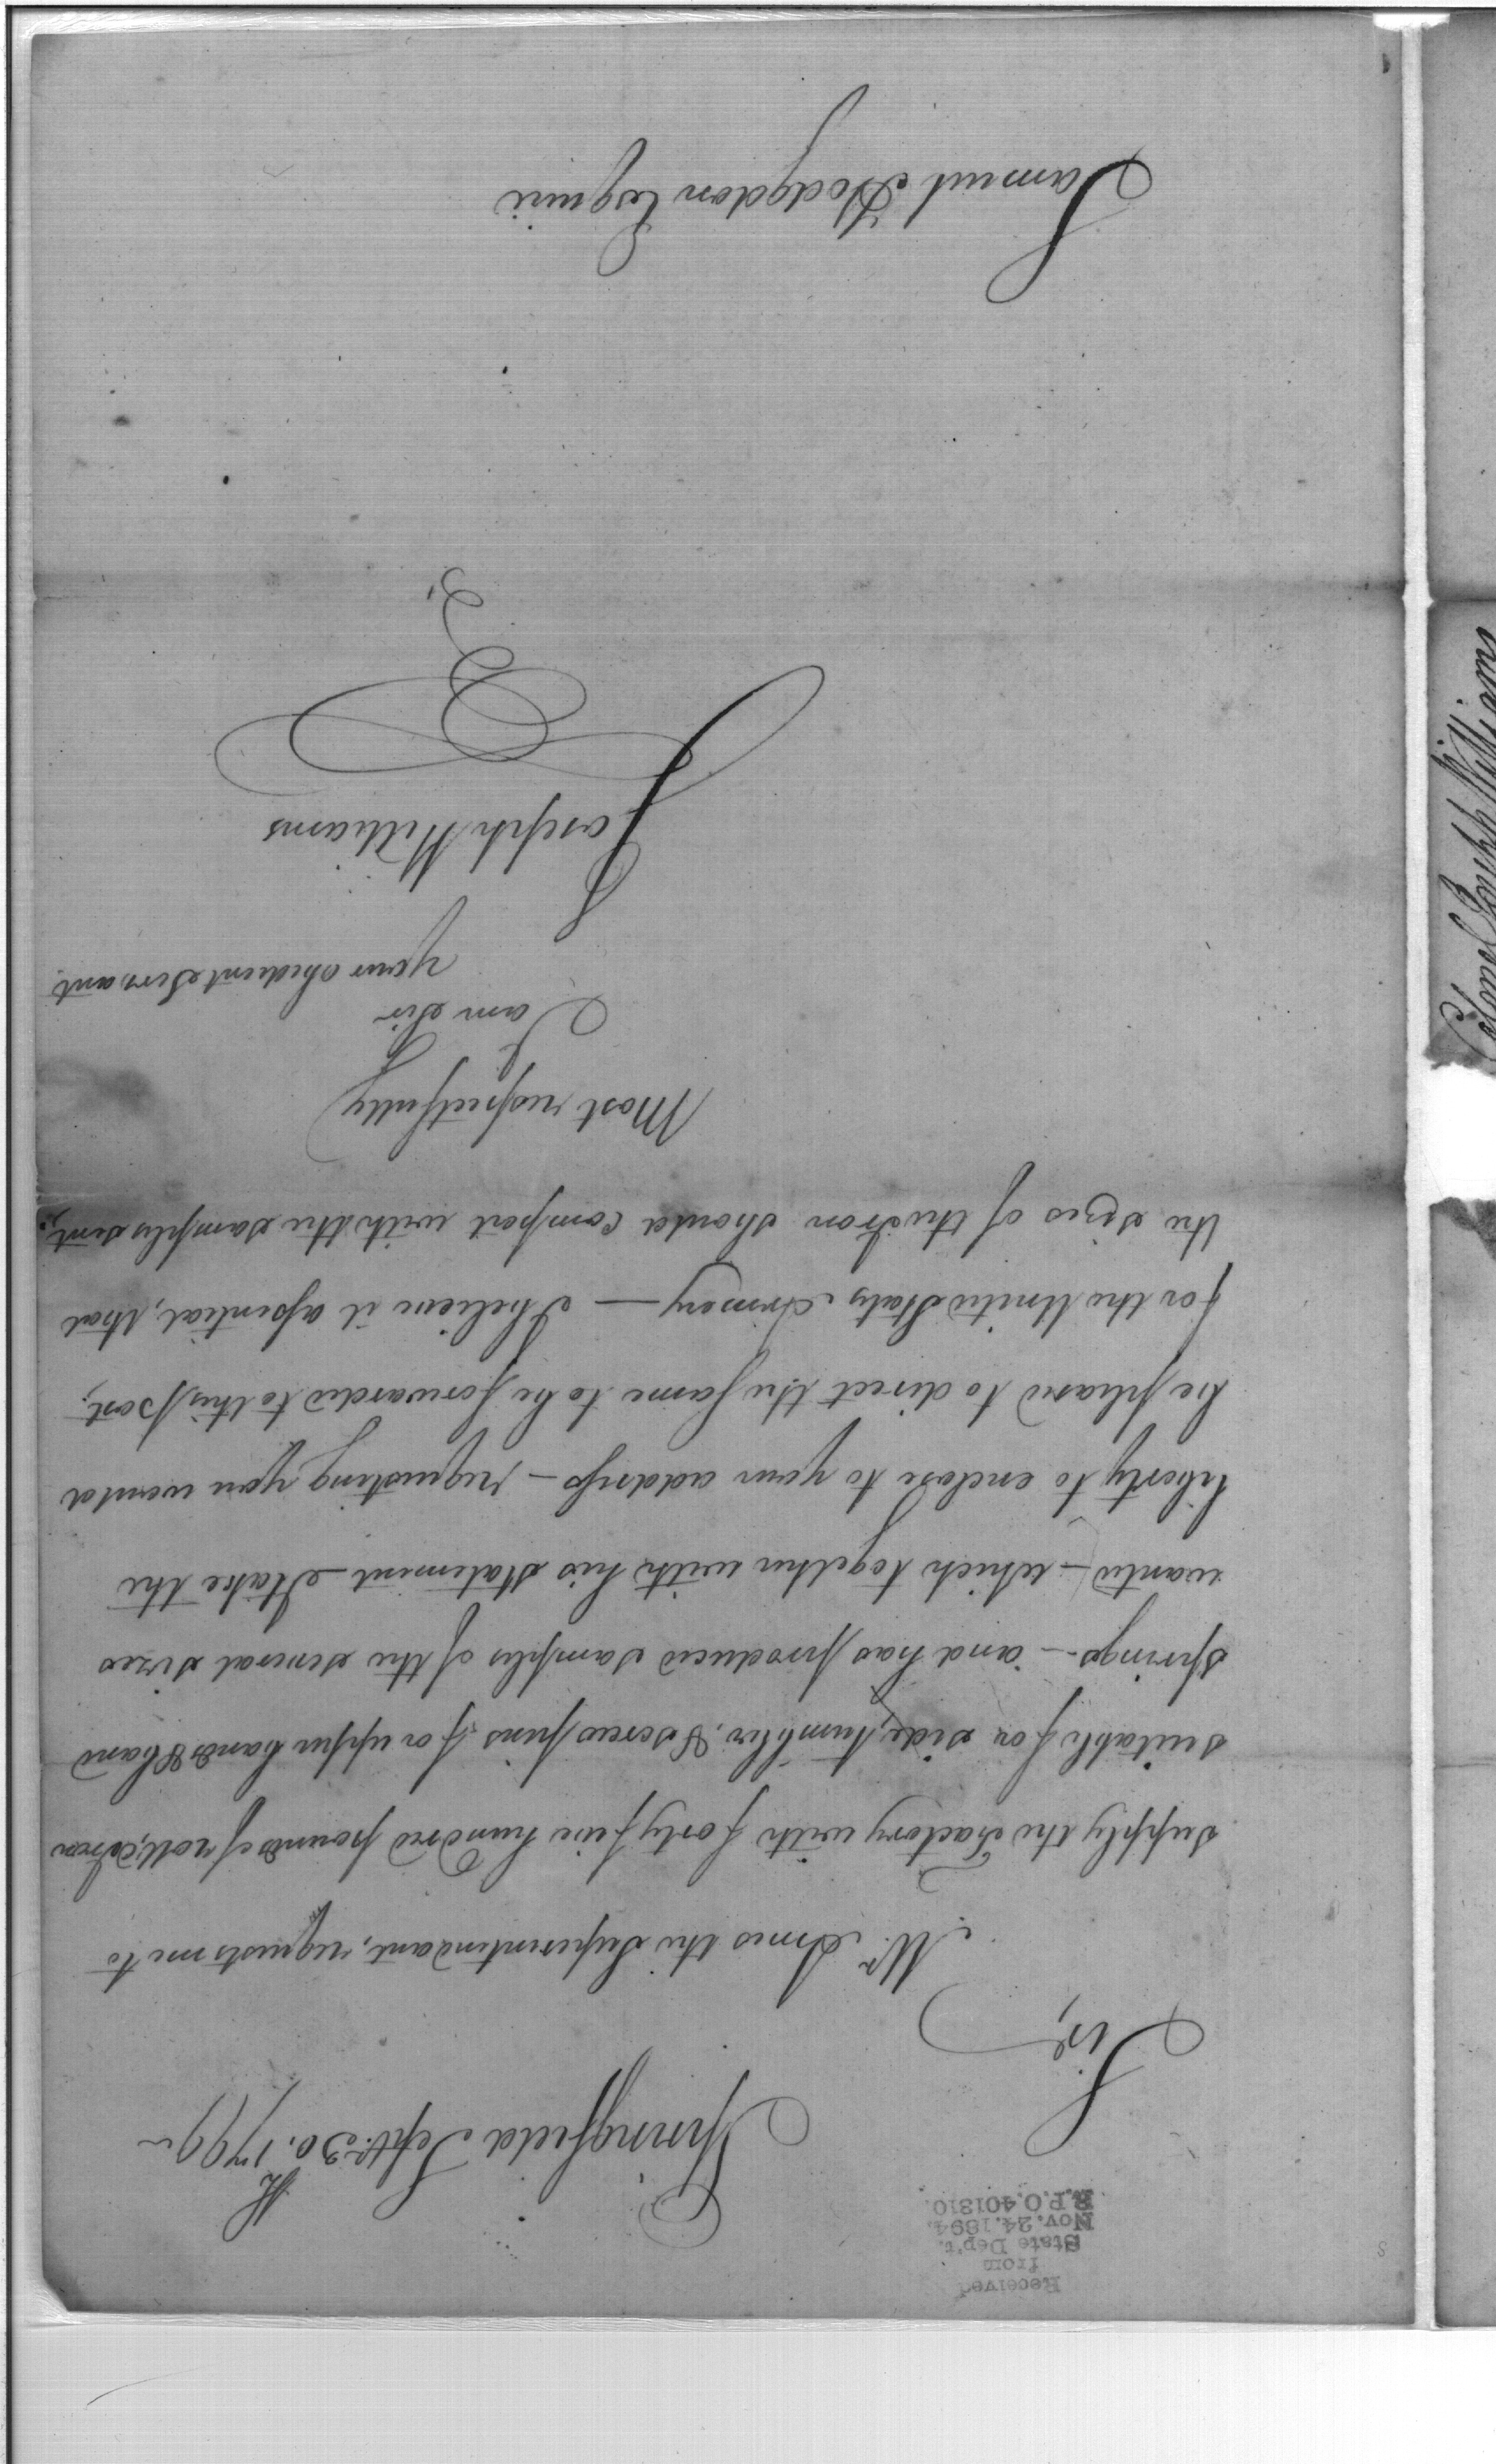 Received
from
State Dep't.
Nov. 24. 1894.
R.P.O. 401310.
Springfield Septr. 30th. 1799
Sir,
Mr. Ames the Superintendant, requests me to
supply the Factory with forty five hundred pounds of roll'd Iron
suitable for side, tumbler, & screw pins, for upper bands & band
springs — and has produced samples of the several sizes
wanted — which together with his statement I take the
liberty to enclose to your address — requesting you would
be pleased to direct the same to be forwarded to this post,
for the United States Armory — I believe it essential, that
the sizes of the Iron should comport with the samples sent,
Most respectfully
I am Sir
your obedient Servant.
Joseph Williams
Samuel Hodgdon Esquire
Colonel Joseph Williams